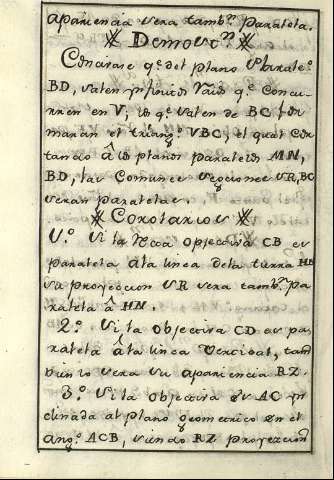 apariencia sera tamb.n paralela.
Demos.on
Concivase q.e del plano
BD, salen infinitos raios q.e concu-
rren en V, los q.e salen de BC for
maran el triang.o VBC, el qual cor
tando â los planos paralelos MN,
BD, las comunes secciones SR, BC
seran paralelas.
Corolarios
1.o Si la recta objectiva CB es
paralela a la linea de la tierra HN
su proyeccion SR sera tamb.n pa
ralela â HN.
2.o Si la objectiva CD es pa,
ralela â la linea vertical, tam
bien lo sera su apariencia RZ.
3.o Si la objectiva es AC yn
clinada al plano geometrico en el
ang.o ACB, siendo RZ proyeccion